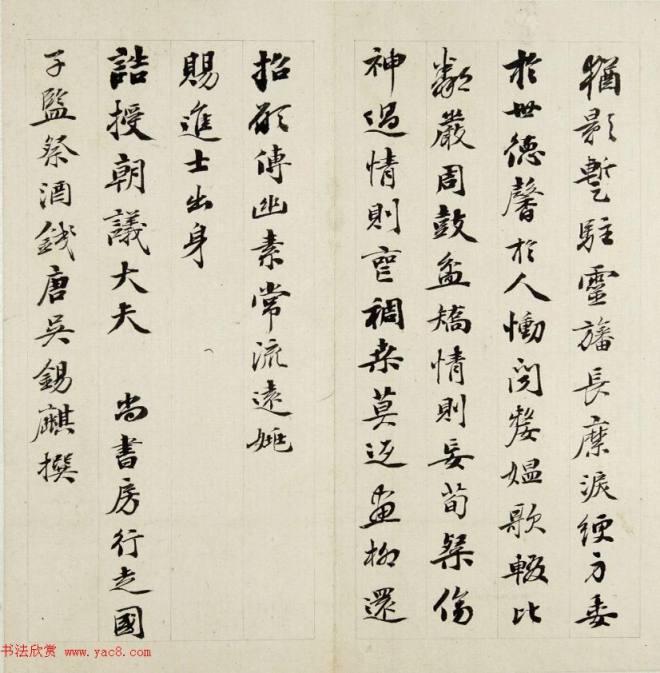 猶影暫駐靈旛長縻淚綆方委
於世德馨於人慟閔嫠媼歌輟比
鄰嚴周鼓盆矯情則妄荀粲傷
神過情則稠桒莫返畫柳還
招傳幽素常流遠
賜進士出身
誥授朝議大夫 尚書房行走國
子監祭酒錢唐吳錫麒撰
书法欣赏 www.yac8.com